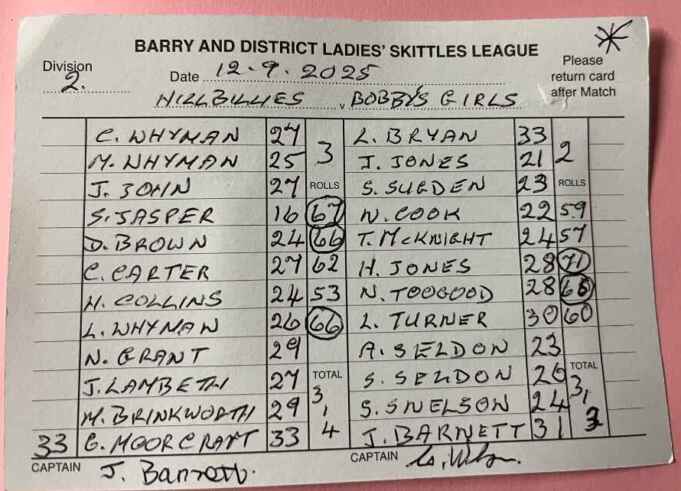 BARRY AND DISTRICT LADIES' SKITTLES LEAGUE
Division 2.
Date 12.9.2025
Please return card after Match
HILLBILLIES v BOBBY'S GIRLS
C. WHYMAN 27 3 L. BRYAN 33 2
M. WHYMAN 25 J. JONES 21
J. JOHN 27 ROLLS S. SUGDEN 23 ROLLS
S. JASPER 16 67 N. COOK 22 59
D. BROWN 24 66 T. MCKNIGHT 24 57
C. CARTER 27 62 H. JONES 28 71
H. COLLINS 24 53 N. TOOGOOD 28 68
L. WHYMAN 26 66 L. TURNER 30 60
N. GRANT 29 A. SELDON 23
J. LAMBETH 27 TOTAL 3 S. SELDON 26 TOTAL 3
M. BRINKWORTH 29 1 S. SNELSON 24 1
33 G. MOORCRAFT 33 4 J. BARNETT 31
CAPTAIN J. Barnett. CAPTAIN